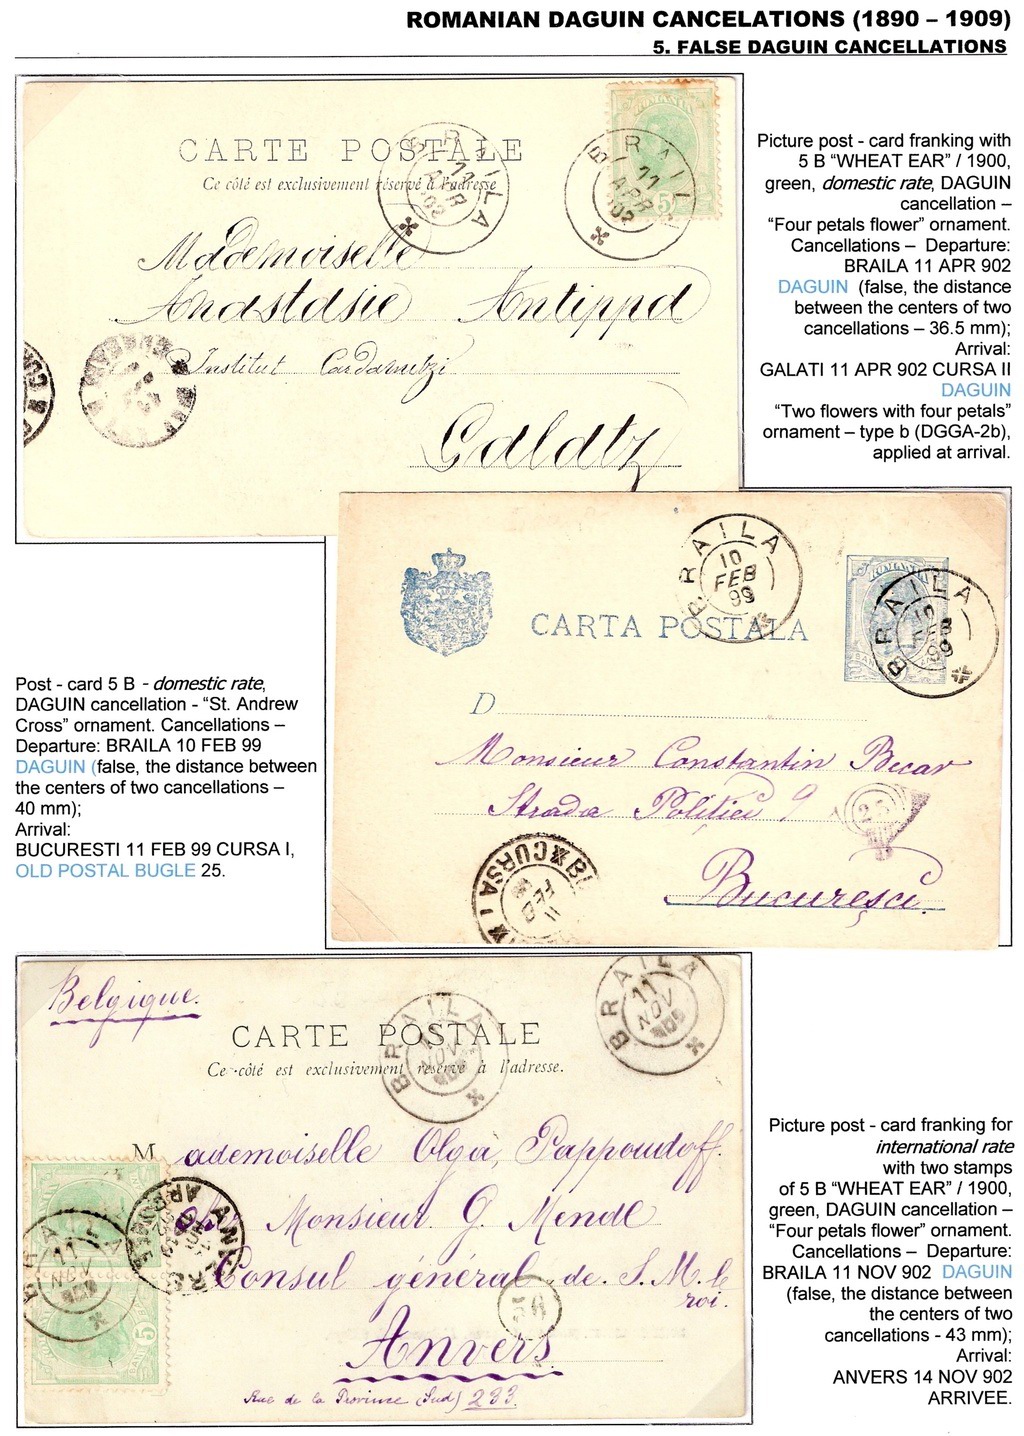 ROMANIAN DAGUIN CANCELATIONS (1890 – 1909)
5. FALSE DAGUIN CANCELLATIONS
CARTE POSTALE
Ce côté est exclusivement réservé à l'adresse
ROMANIA
5
BRAILA
11
APR
902
BRAILA
11
APR
902
Mademoiselle
Anastasie Antippa
Institut Cardamitzi
Galatz
Picture post - card franking with
5 B “WHEAT EAR” / 1900,
green, domestic rate, DAGUIN
cancellation –
“Four petals flower” ornament.
Cancellations – Departure:
BRAILA 11 APR 902
DAGUIN (false, the distance
between the centers of two
cancellations – 36.5 mm);
Arrival:
GALATI 11 APR 902 CURSA II
DAGUIN
“Two flowers with four petals”
ornament – type b (DGGA-2b),
applied at arrival.
BRAILA
10
FEB
99
BRAILA
10
FEB
99
CARTA POSTALA
D
Monsieur Constantin Becar
Strada Politiei 9
25
București
CURSA I
11
FEB
Post - card 5 B - domestic rate,
DAGUIN cancellation - “St. Andrew
Cross” ornament. Cancellations –
Departure: BRAILA 10 FEB 99
DAGUIN (false, the distance between
the centers of two cancellations –
40 mm);
Arrival:
BUCURESTI 11 FEB 99 CURSA I,
OLD POSTAL BUGLE 25.
Belgique.
BRAILA
11
NOV
BRAILA
11
NOV
CARTE POSTALE
Ce côté est exclusivement réservé à l'adresse.
Mademoiselle Olga Pappoudoff.
chez Monsieur G. Mendl
Consul général de S. M. le
roi.
Anvers
Rue de la Province (Sud) 233.
BRAILA
11
NOV
ANVERS
ARRIVEE
5
Picture post - card franking for
international rate
with two stamps
of 5 B “WHEAT EAR” / 1900,
green, DAGUIN cancellation –
“Four petals flower” ornament.
Cancellations – Departure:
BRAILA 11 NOV 902 DAGUIN
(false, the distance between
the centers of two
cancellations - 43 mm);
Arrival:
ANVERS 14 NOV 902
ARRIVEE.